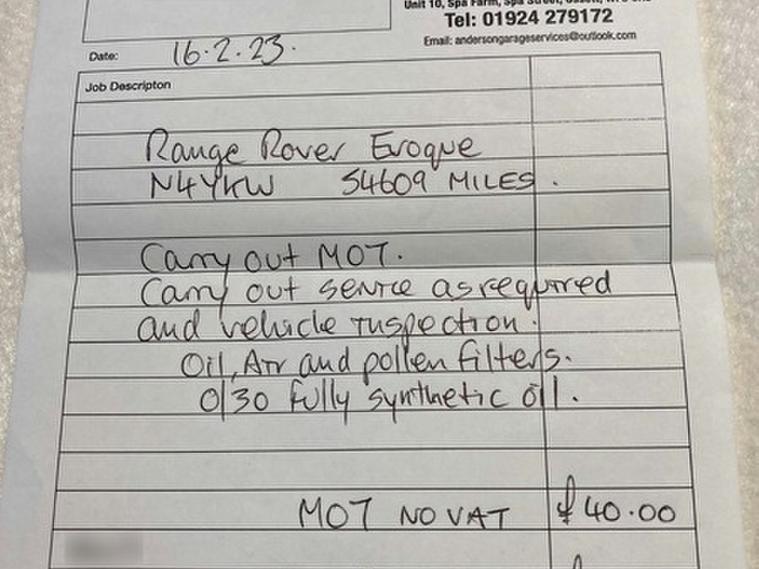 Unit 10, Spa Farm, Spa Street, Ossett,
Tel: 01924 279172
Email: andersongarageservices@outlook.com
Date: 16.2.23.
Job Descripton
Range Rover Evoque
N4YKW 54609 MILES.
Carry out MOT.
Carry out service as required
and vehicle inspection.
Oil, Air and pollen filters.
0/30 fully synthetic oil.
MOT NO VAT £40.00